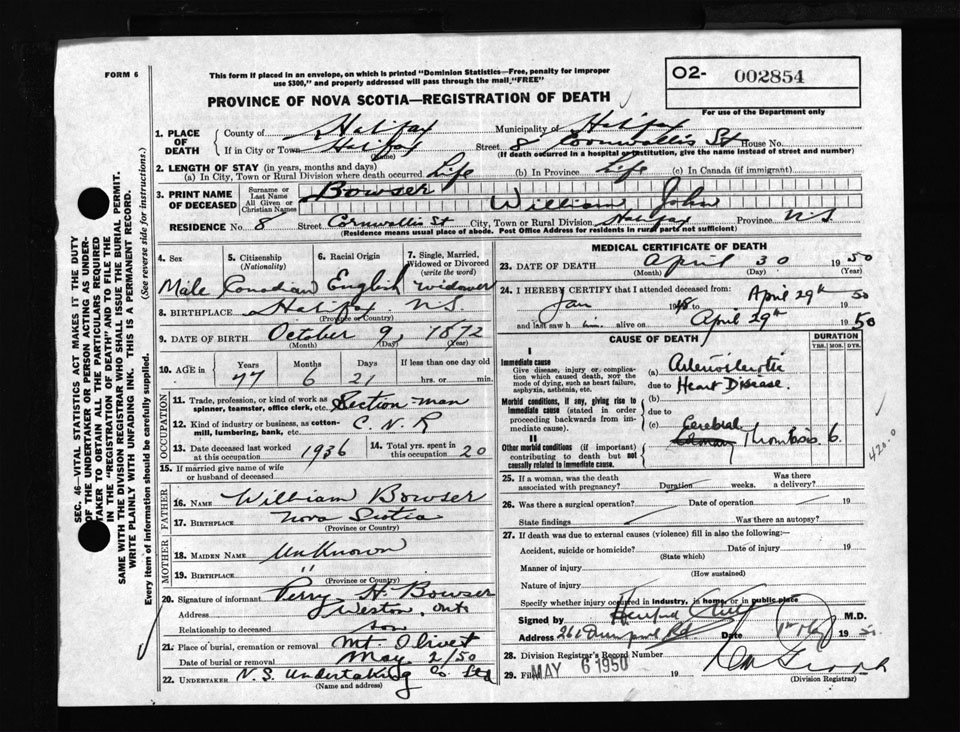 FORM 6
This form if placed in an envelope, on which is printed "Dominion Statistics—Free, penalty for improper
use $300," and properly addressed will pass through the mail "FREE"
PROVINCE OF NOVA SCOTIA—REGISTRATION OF DEATH
O2- 002854
For use of the Department only
SEC. 46—VITAL STATISTICS ACT MAKES IT THE DUTY
OF THE UNDERTAKER OR PERSON ACTING AS UNDER-
TAKER TO OBTAIN ALL THE PARTICULARS REQUIRED
IN THE "REGISTRATION OF DEATH" AND TO FILE THE
SAME WITH THE DIVISION REGISTRAR WHO SHALL ISSUE THE BURIAL PERMIT.
WRITE PLAINLY WITH UNFADING INK. THIS IS A PERMANENT RECORD.
Every item of information should be carefully supplied. (See reverse side for instructions.)
1. PLACE OF DEATH
County of Halifax Municipality of Halifax
If in City or Town Halifax Street 8 Cornwallis St House No.
(Name) (If death occurred in a hospital or institution, give the name instead of street and number)
2. LENGTH OF STAY (in years, months and days)
(a) In City, Town or Rural Division where death occurred Life (b) In Province Life (c) In Canada (if immigrant)
3. PRINT NAME OF DECEASED
Surname or Last Name Bowser
All Given or Christian Names William John
RESIDENCE No. 8 Street Cornwallis St City, Town or Rural Division Halifax Province N.S.
(Residence means usual place of abode. Post Office Address for residents in rural parts not sufficient)
4. Sex 5. Citizenship (Nationality) 6. Racial Origin 7. Single, Married, Widowed or Divorced (write the word)
Male Canadian English widower
8. BIRTHPLACE Halifax N.S.
(Province or Country)
9. DATE OF BIRTH October 9, 1872
(Month) (Day) (Year)
10. AGE in Years Months Days If less than one day old
77 6 21 hrs. or min.
OCCUPATION
11. Trade, profession, or kind of work as spinner, teamster, office clerk, etc. Section-man
12. Kind of industry or business, as cotton-mill, lumbering, bank, etc. C.N.R
13. Date deceased last worked at this occupation 1936 14. Total yrs. spent in this occupation 20
15. If married give name of wife or husband of deceased
FATHER
16. NAME William Bowser
17. BIRTHPLACE Nova Scotia
(Province or Country)
MOTHER
18. MAIDEN NAME UnKnown
19. BIRTHPLACE "
(Province or Country)
20. Signature of informant Perry H. Bowser
Address Weston, Ont
Relationship to deceased son
21. Place of burial, cremation or removal Mt. Olivet
Date of burial or removal May 2/50
22. UNDERTAKER N.S. Undertaking Co. Ltd
(Name and address)
MEDICAL CERTIFICATE OF DEATH
23. DATE OF DEATH April 30 1950
(Month) (Day) (Year)
24. I HEREBY CERTIFY that I attended deceased from:
Jan 1948 to April 29th 1950
and last saw him alive on April 29th 1950
CAUSE OF DEATH DURATION
YRS. MOS. DYS.
I
Immediate cause
Give disease, injury or complication which caused death, NOT the mode of dying, such as heart failure, asphyxia, asthenia, etc.
(a) Arteriosclerotic
due to Heart Disease.
Morbid conditions, if any, giving rise to immediate cause (stated in order proceeding backwards from immediate cause).
(b)
due to
(c) Cerebral
Thrombosis 6.
II
Other morbid conditions (if important) contributing to death but not causally related to immediate cause.
420-0
25. If a woman, was the death associated with pregnancy? Duration weeks Was there a delivery?
26. Was there a surgical operation? Date of operation 19
State findings Was there an autopsy?
27. If death was due to external causes (violence) fill in also the following:—
Accident, suicide or homicide? Date of injury 19
(State which)
Manner of injury
(How sustained)
Nature of injury
Specify whether injury occurred in Industry, in home or in public place
Signed by M.D.
Address Date 19
28. Division Registrar's Record Number
29. Filed MAY 6 1950 19
(Division Registrar)